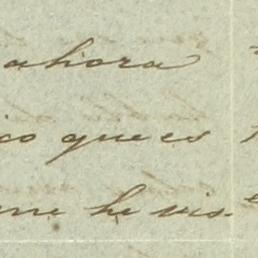 ahora
ico que es
me he vis-